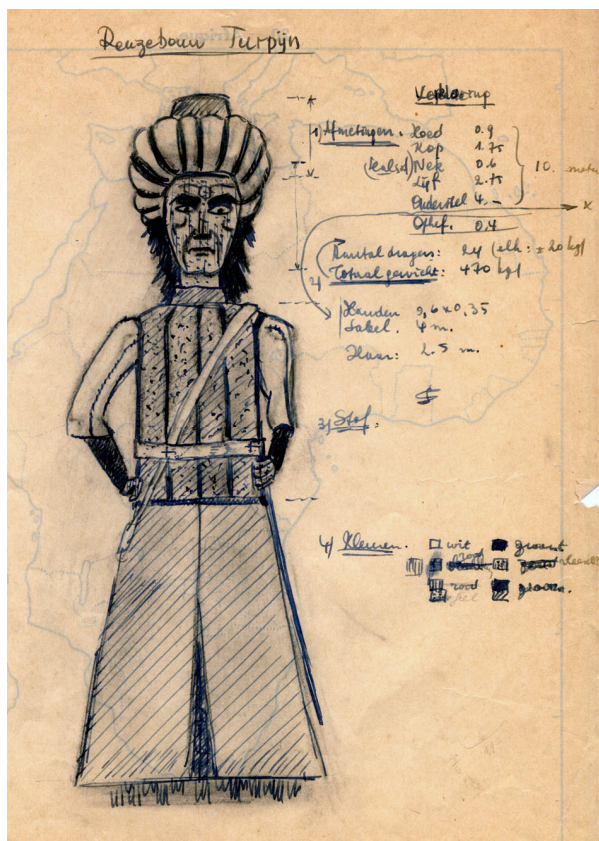 Reuzebouw Turpijn
Afrique
Verklaring
1) Afmetingen. Hoed 0.9
Kop 1.75
(hals) Nek 0.6
Lijf 2.75
Onderstel 4.-
10. meter
x
Ophef. 0.4
2) Aantal dragers: 24 (elk: ± 20 kg)
Totaal gewicht: 470 kg
Handen 0,6 x 0,35
Sabel. 4 m.
Haar: 2.5 m.
3) Stof.
4) Kleuren. wit zwart
rood groen.